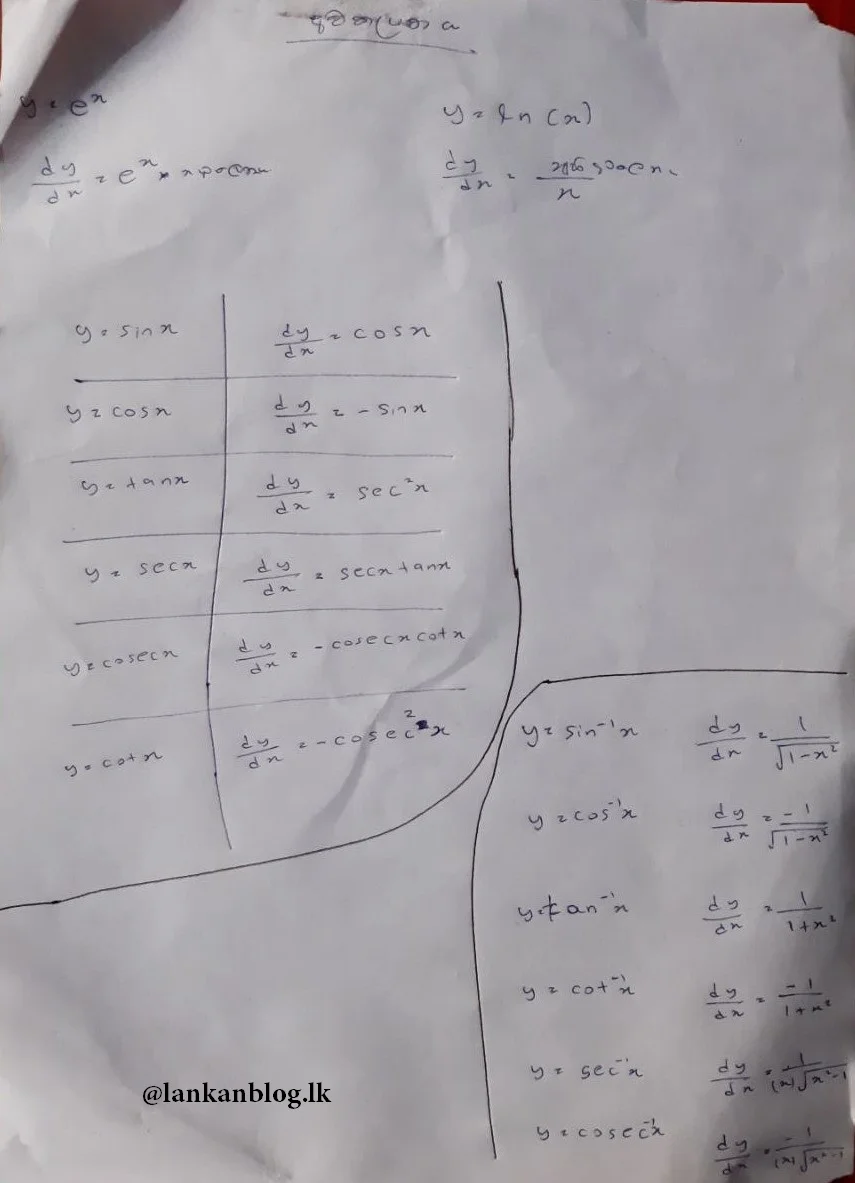 y = eˣ
dy/dx = eˣ ×
y = ln (x)
dy/dx =
x
y = sin x
dy/dx = cos x
y = cos x
dy/dx = - sin x
y = tan x
dy/dx = sec²x
y = sec x
dy/dx = sec x tan x
y = cosec x
dy/dx = - cosec x cot x
y = cot x
dy/dx = - cosec²x
y = sin⁻¹x
dy/dx = 1/√(1-x²)
y = cos⁻¹x
dy/dx = -1/√(1-x²)
y = tan⁻¹x
dy/dx = 1/(1+x²)
y = cot⁻¹x
dy/dx = -1/(1+x²)
y = sec⁻¹x
dy/dx = 1/((x)√(x²-1))
y = cosec⁻¹x
dy/dx = -1/((x)√(x²-1))
@lankanblog.lk